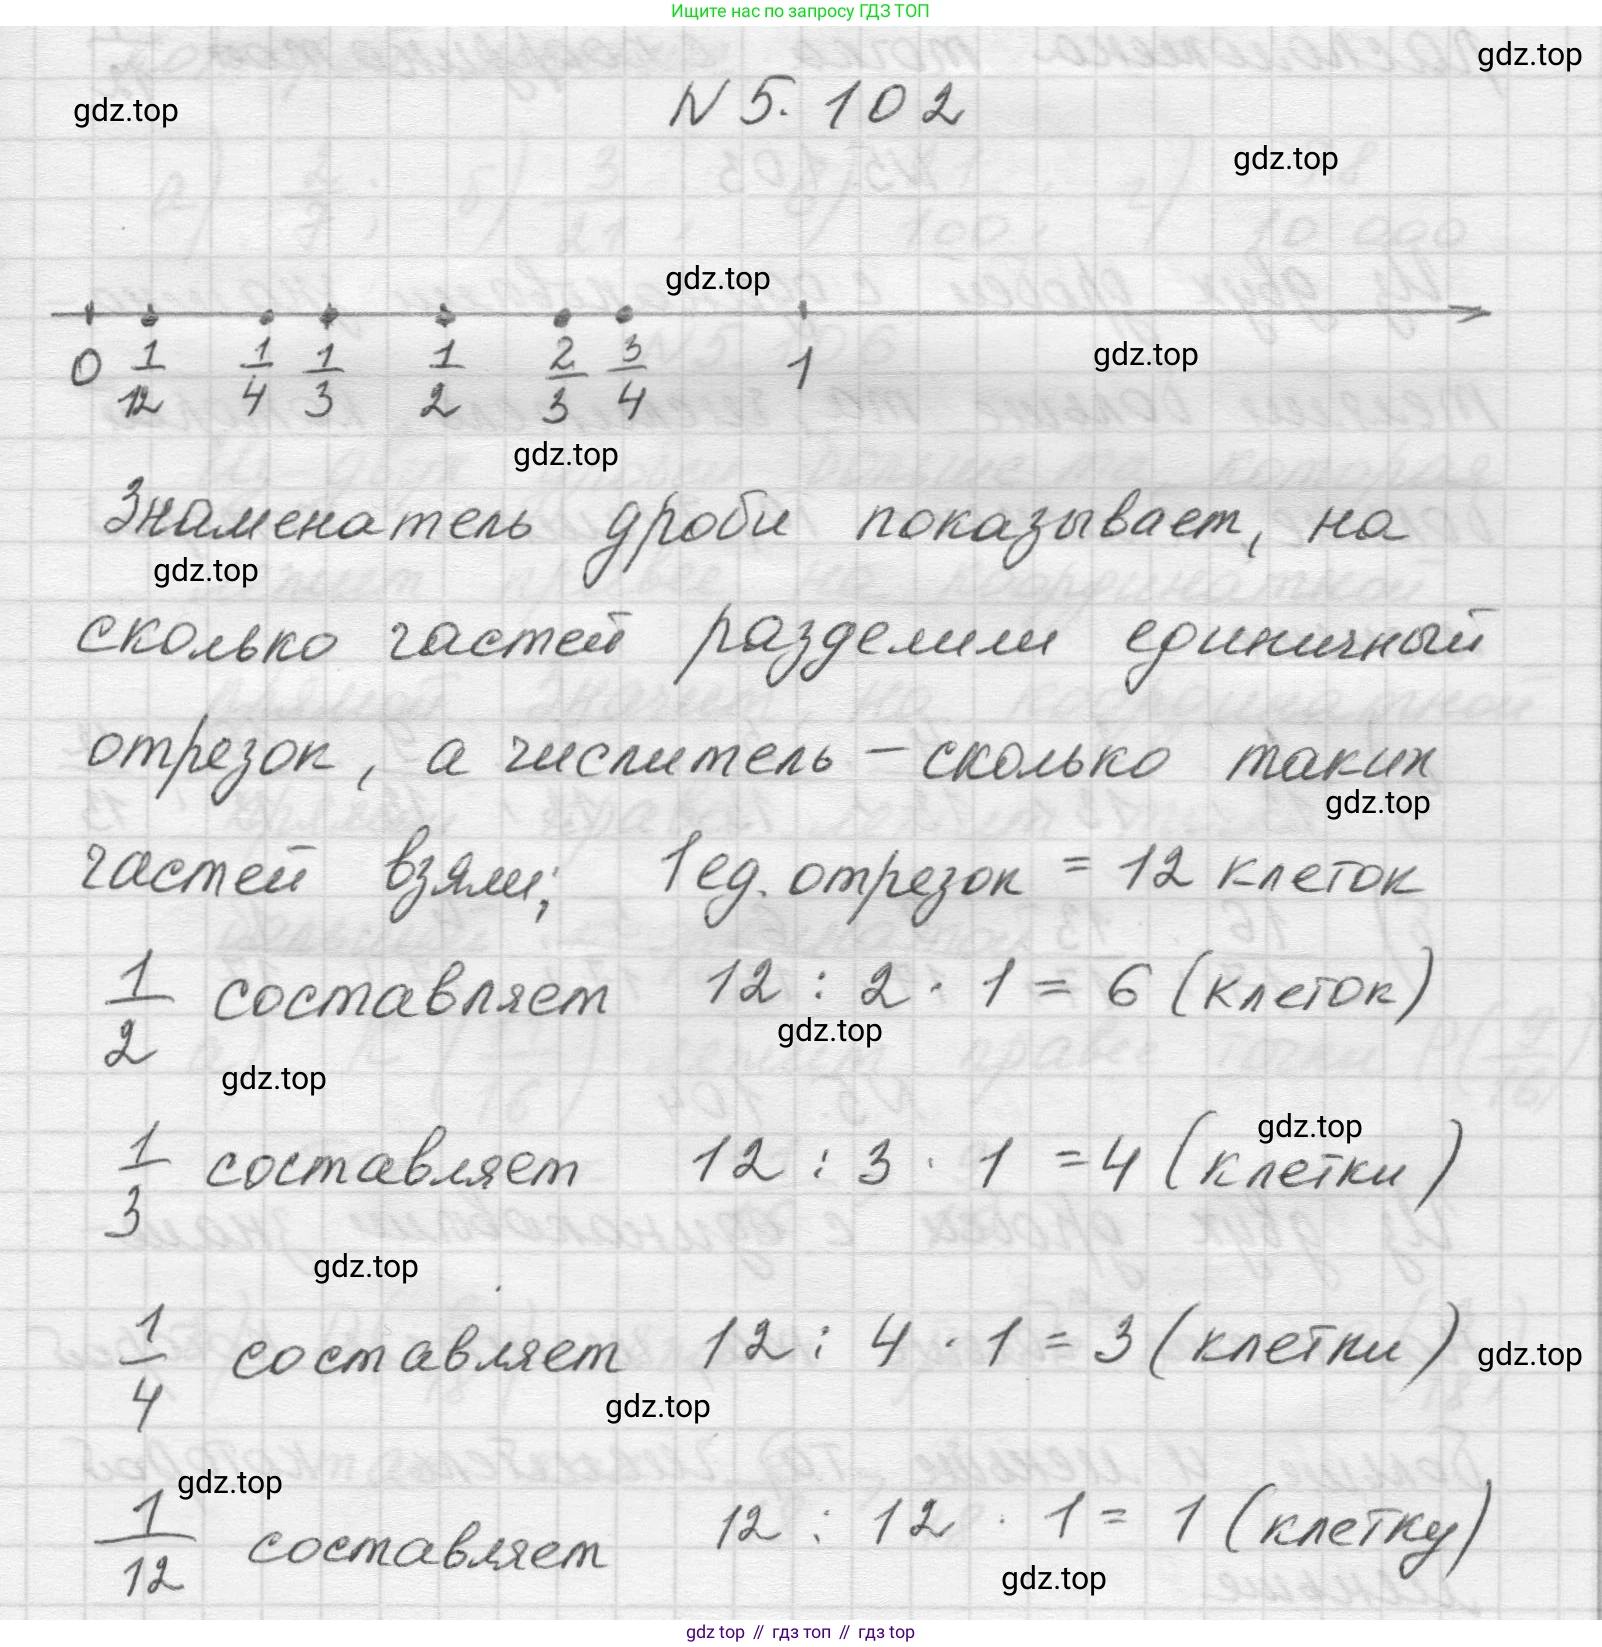 Ищите нас по запросу ГДЗ ТОП
gdz.top
gdz.top
N 5.102
gdz.top
gdz.top
0 1/12 1/4 1/3 1/2 2/3 3/4 1
gdz.top
gdz.top
Знаменатель дроби показывает, на
gdz.top
сколько частей разделили единичный
отрезок, а числитель – сколько таких
gdz.top
частей взяли; 1 ед. отрезок = 12 клеток
1/2 составляет 12 : 2 · 1 = 6 (клеток)
gdz.top
gdz.top
gdz.top
1/3 составляет 12 : 3 · 1 = 4 (клетки)
gdz.top
1/4 составляет 12 : 4 · 1 = 3 (клетки)
gdz.top
gdz.top
gdz.top
1/12 составляет 12 : 12 · 1 = 1 (клетку)
gdz.top
gdz top // гдз топ // гдз top